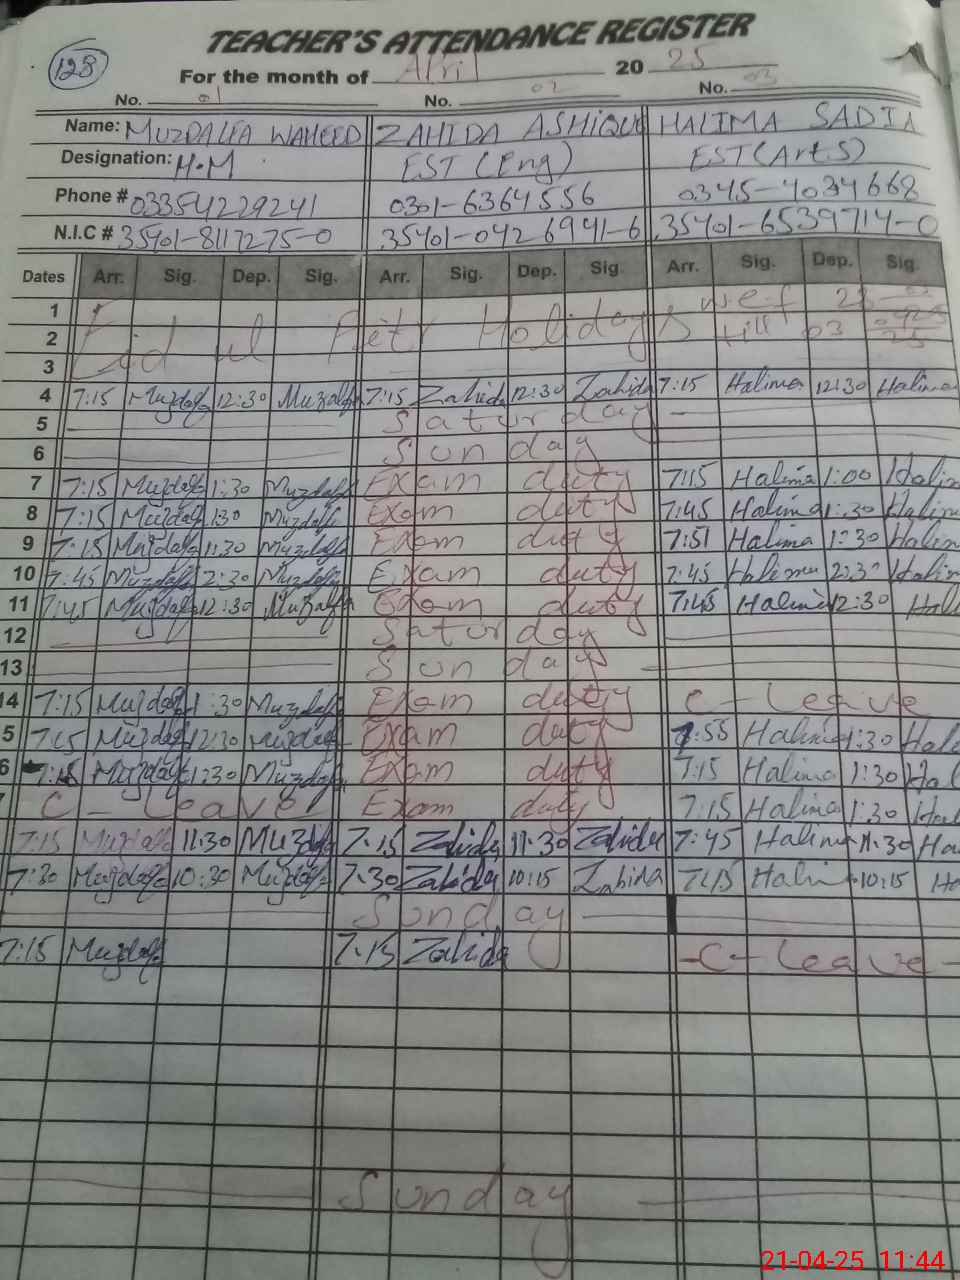 TEACHER'S ATTENDANCE REGISTER
128
For the month of April 2025
No. 01 No. 02 No. 03
Name: MUZDALFA WAHEED ZAHIDA ASHIQUE HALIMA SADIA
Designation: H.M EST (Eng) EST (Arts)
Phone # 03354229241 0301-6364556 0345-4034668
N.I.C # 35401-8117275-0 35401-0426941-6 35401-6539714-0
Dates Arr. Sig. Dep. Sig. Arr. Sig. Dep. Sig. Arr. Sig. Dep. Sig.
1
2 Eid ul Fitr Holidays w.e.f till 03
3
4 7:15 Muzdalfa 12:30 Muzdalfa 7:15 Zahida 12:30 Zahida 7:15 Halima 12:30 Halima
5 Saturday
6 Sunday
7 7:15 Muzdalfa 1:30 Muzdalfa Exam duty 7:15 Halima 1:00 Halim
8 7:15 Muzdalfa 1:30 Muzdalfa Exam duty 7:45 Halima 1:30 Halim
9 7:15 Muzdalfa 1:30 Muzdalfa Exam duty 7:51 Halima 1:30 Halim
10 7:45 Muzdalfa 2:30 Muzdalfa Exam duty 7:45 Halima 2:30 Halim
11 7:45 Muzdalfa 12:30 Muzdalfa Exam duty 7:45 Halima 12:30 Hali
12 Saturday
13 Sunday
14 7:15 Muzdalfa 1:30 Muzdalfa Exam duty C-Leave
5 7:15 Muzdalfa 12:30 Muzdalfa Exam duty 7:55 Halima 1:30 Hali
6 7:15 Muzdalfa 1:30 Muzdalfa Exam duty 7:15 Halima 1:30 Hal
C-Leave Exam duty 7:15 Halima 1:30 Hal
7:15 Muzdalfa 11:30 Muzdalfa 7:15 Zahida 11:30 Zahida 7:45 Halima 11:30 Ha
7:30 Muzdalfa 10:30 Muzdalfa 7:30 Zahida 10:15 Zahida 7:15 Halima 10:15 Ha
Sunday
7:15 Muzdalfa 7:15 Zahida C-Leave
Sunday
21-04-25 11:44